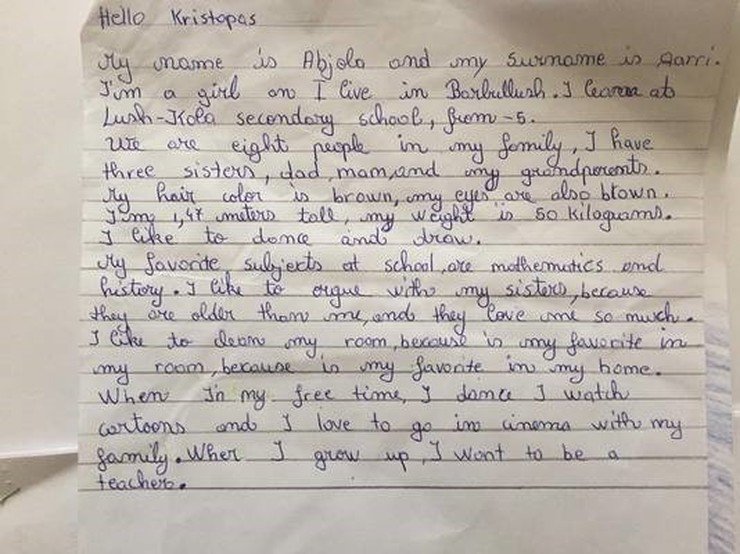 Hello Kristopas
My name is Abjola and my surname is Darri.
I'm a girl an I live in Barbullush. I learna at
Lush-Kola secondary school, from -5.
We are eight people in my family, I have
three sisters, dad, mam, and my grandparents.
My hair color is brown, my eyes are also brown.
I'm, 1,47 meters tall, my weight is 50 kilograms.
I like to dance and draw.
My favorite subjects at school, are mathematics and
history. I like to argue with my sisters, because
they are older than me, and they love me so much.
I like to clean my room, because is my favorite in
my room, because is my favorite in my home.
When In my free time, I dance I watch
cartoons and I love to go in cinema with my
family. When I grow up, I want to be a
teacher.